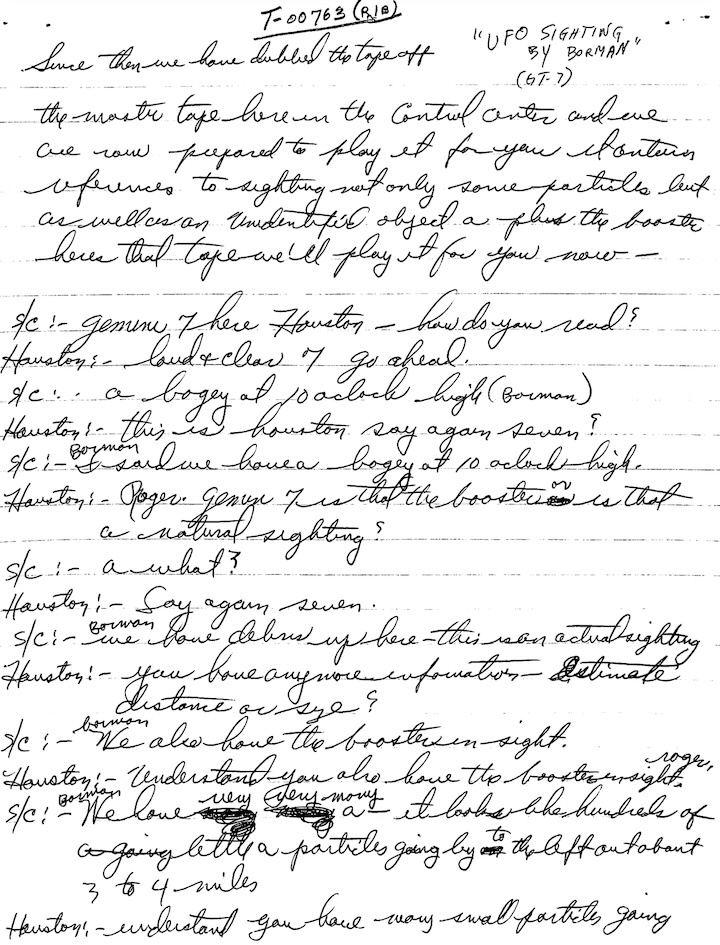 T-00763 (R/B)
"UFO SIGHTING
BY BORMAN"
(GT-7)
Since then we have dubbed the tape off
the master tape here in the Control center and we
are now prepared to play it for you it contains
references to sighting not only some particles but
as well as an Unidentified object a plus the booster
heres that tape we'll play it for you now —
S/C :- Gemini 7 here Houston — how do you read?
Houston :- loud & clear 7 go ahead.
S/C :- a bogey at 10 oclock high (Borman)
Houston :- this is houston say again seven?
Borman
S/C :- I said we have a bogey at 10 oclock high.
Houston :- Roger. Gemini 7 is that the booster or is that
a natural sighting?
S/C :- a what?
Houston :- Say again seven.
Borman
S/C :- we have debris up here - this is an actual sighting
Houston :- you have anymore information — Estimate
distance or size?
borman
S/C :- We also have the booster in sight.
Houston :- Understand you also have the booster in sight, roger.
Borman
S/C :- We have very very many a — it looks like hundreds of
little a particles going by to the left out about
3 to 4 miles
Houston :- understand you have many small particles going